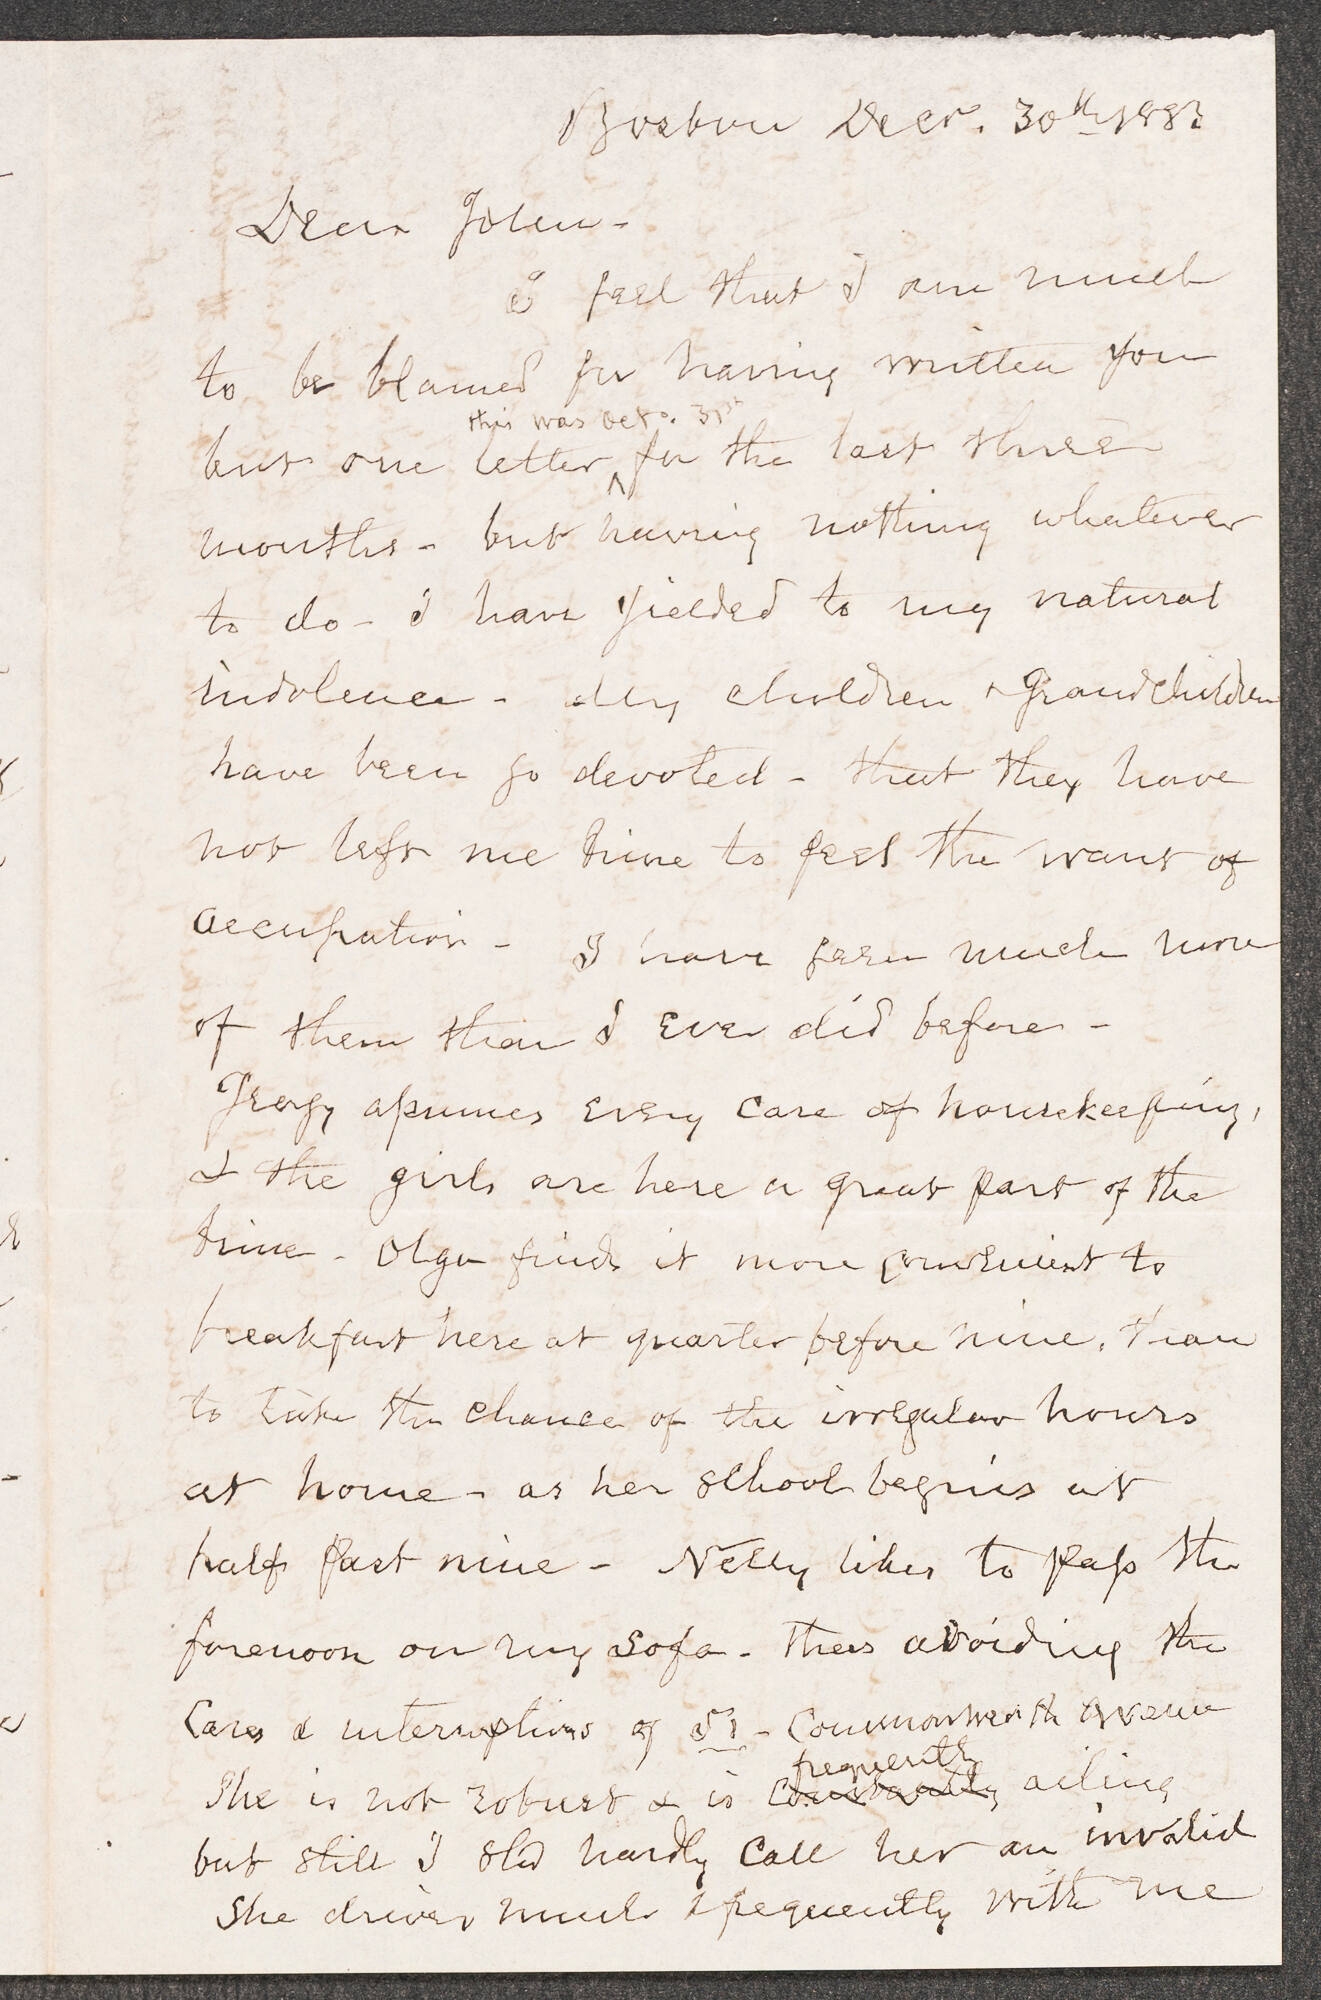 Boston Decr. 30th 1883
Dear John -
I feel that I am much
to be blamed for having written you
this was Octo. 31st
but one letter ^ for the last three
months - but having nothing whatever
to do - I have yielded to my natural
indolence - My children & Grandchildren
have been so devoted - that they have
not left me time to feel the want of
occupation - I have seen much more
of them than I ever did before -
Georgy assumes every care of housekeeping,
& the girls are here a great part of the
time - Olga finds it more convenient to
breakfast here at quarter before nine, than
to take the chance of the irregular hours
at home - as her school begins at
half past nine - Nelly likes to pass the
forenoon on my sofa - thus avoiding the
Cares & interruptions of 51 - Commonwealth Avenue
frequently
She is not robust & is constantly ailing
but still I shd hardly call her an invalid
She drives much & frequently with me